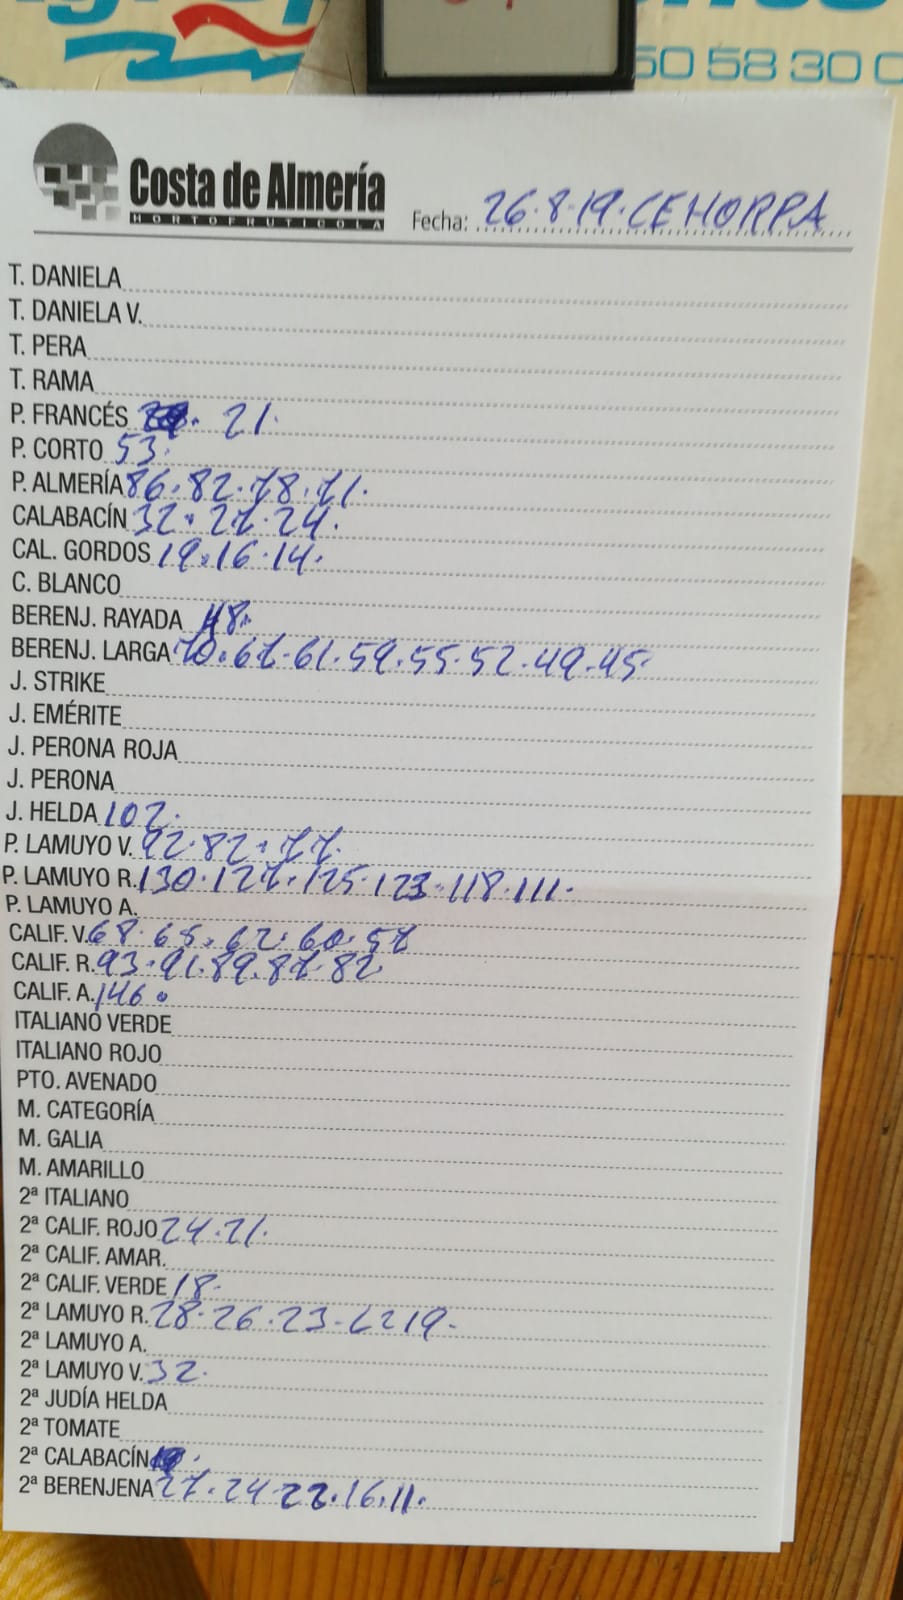 50 58 30 0
Costa de Almería
HORTOFRUTICOLA
Fecha: 26.8.19.CEHORPA
T. DANIELA
T. DANIELA V.
T. PERA
T. RAMA
P. FRANCÉS 21.
P. CORTO 53.
P. ALMERÍA 86.82.78.71.
CALABACÍN 32.27.24.
CAL. GORDOS 19.16.14.
C. BLANCO
BERENJ. RAYADA 48.
BERENJ. LARGA 70.67.61.59.55.52.49.45.
J. STRIKE
J. EMÉRITE
J. PERONA ROJA
J. PERONA
J. HELDA 102.
P. LAMUYO V. 92.82.77.
P. LAMUYO R. 130.127.125.123.118.111.
P. LAMUYO A.
CALIF. V. 68.65.62.60.57
CALIF. R. 93.91.89.87.82
CALIF. A. 146.
ITALIANO VERDE
ITALIANO ROJO
PTO. AVENADO
M. CATEGORÍA
M. GALIA
M. AMARILLO
2ª ITALIANO
2ª CALIF. ROJO 24.21.
2ª CALIF. AMAR.
2ª CALIF. VERDE 18.
2ª LAMUYO R. 28.26.23.22 19.
2ª LAMUYO A.
2ª LAMUYO V. 32.
2ª JUDÍA HELDA
2ª TOMATE
2ª CALABACÍN
2ª BERENJENA 27.24.22.16.11.